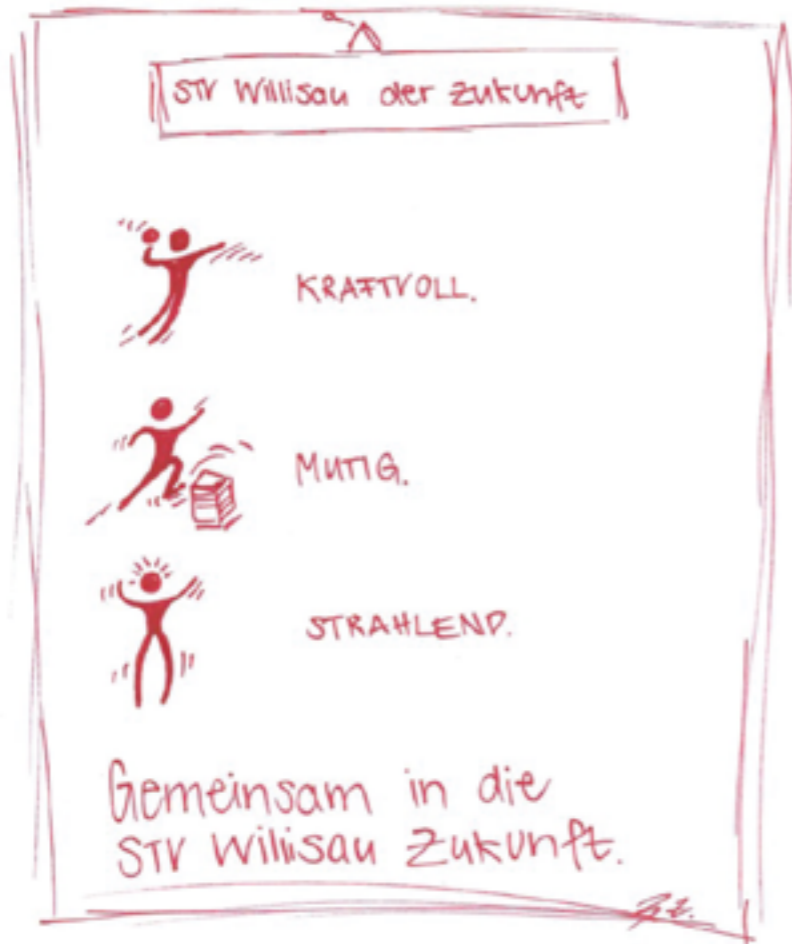 STV Willisau der Zukunft
KRAFTVOLL.
MUTIG.
STRAHLEND.
Gemeinsam in die
STV Willisau Zukunft.